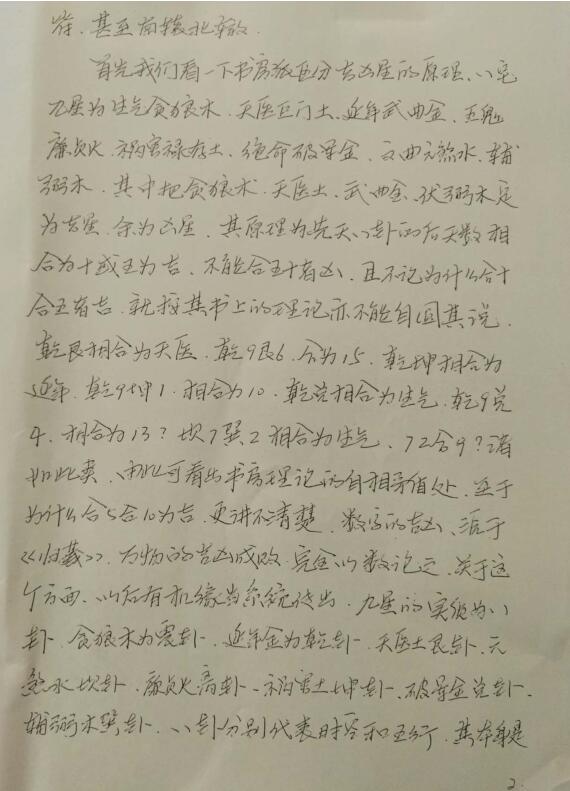 背、甚至南辕北辙.
首先我们看一下书房派区分吉凶星的原理、八宅
九星为生气贪狼木、天医巨门土、延年武曲金、五鬼
廉贞火、祸害禄存土、绝命破军金、文曲六煞水、辅
弼木、其中把贪狼木、天医土、武曲金、伏弼木定
为吉星、余为凶星、其原理为先天八卦的后天数相
合为十或五为吉、不能合五十者凶、且不论为什么合十
合五者吉、就按其书上的理论亦不能自圆其说、
乾艮相合为天医、乾9艮6、合为15、乾坤相合为
延年、乾9坤1、相合为10、乾兑相合为生气、乾9兑
4、相合为13?坎7巽2相合为生气、72合9?诸
如此类、由此可看出书房理论的自相矛盾处、至于
为什么合5合10为吉、更讲不清楚、数字的吉凶、源于
《归藏》、万物的吉凶成败、完全以数论定、关于这
个方面、以后有机缘当系统传出、九星的实质为八
卦、贪狼木为震卦、延年金为乾卦、天医土艮卦、六
煞水坎卦、廉贞火离卦、祸害土坤卦、破军金兑卦、
辅弼木巽卦、八卦分别代表时令和五行、其本身是
2.